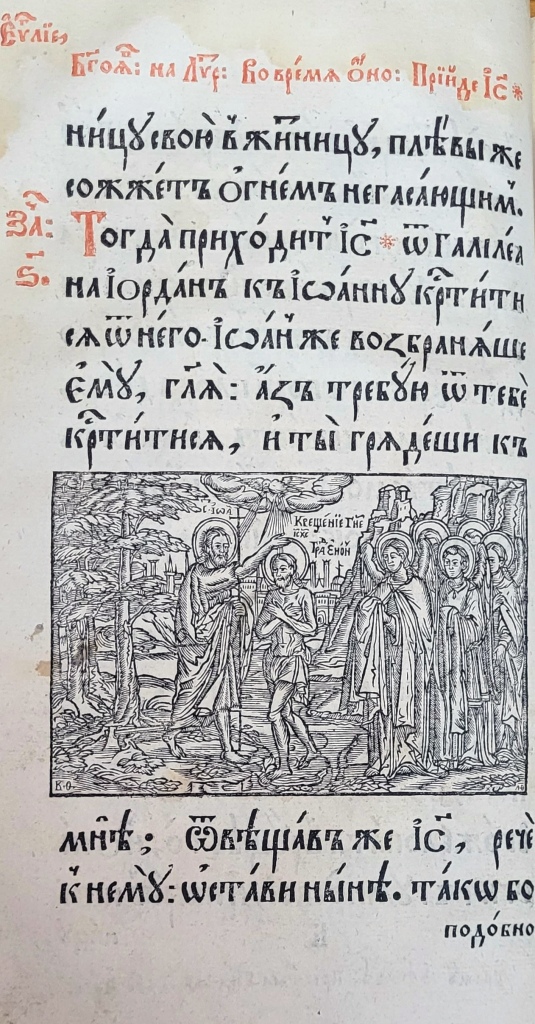 Е҆ѵⷢ҇лїе,
Бг҃оѧⷡ҇: на Лѵⷬ҇: Во время ѻ҆́но: Прїи́де І҆с҃ *
ни́цу свою̀ в̾ жи́тницу, плє́вы же
сожже́тъ ѻ҆гне́мъ негаса́ющимⷨ.
За҃: Тогда̀ прихо́дитⷮ І҆с҃ * ѿ Галїле́а
ѕ҃. на І҆ѻрда́нъ къ І҆ѡа́нну крⷭ҇ти́ти
сѧ ѿ негѡ̀. І҆ѡа́нⷩ же возбранѧ́ше
є҆мꙋ̀, гл҃ѧ: а҆́зъ требꙋ́ю ѿ тебѐ
крⷭ҇ти́тисѧ, и҆ ты̀ грѧде́ши къ
С. І҆ѡаⷩ
Крещенїе Гⷣне
В·Ѳ·
мнѣ̀; Ѿвѣща́въ же І҆с҃, речѐ
к̾ немꙋ̀: ѡ҆ста́ви ны́нѣ. та́кѡ бо
подо́бно